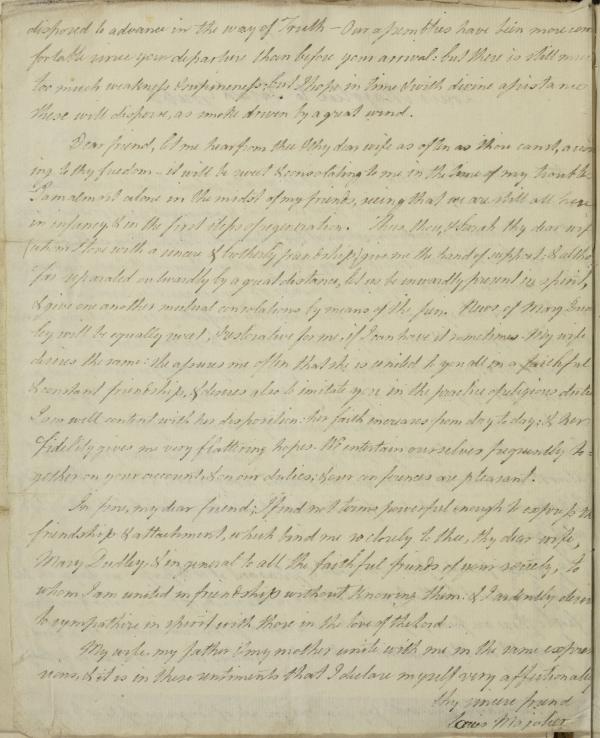 disposed to advance in the way of Truth – Our assemblies have been more com
fortable since your departure than before your arrival: but there is still much
too much weakness & impureness: but I hope in time & with divine assistance
these will disperse, as smoke driven by a great wind.
Dear friend, let me hear from thee & thy dear wife as often as thou canst, accord
ing to thy freedom – it will be sweet & consolating to me in the time of my trouble
I am almost alone in the midst of my friends, seeing that we are still all here
in infancy & in the first steps of regeneration. Thou, then, & Sarah thy dear wife
(whom I love with a sincere & brotherly friendship) give me the hand of support: & altho
far separated outwardly by a great distance, let us be inwardly present in spirit,
& give one another mutual consolations by means of the pen. News of Mary Dud
ley will be equally sweet, & restorative for me, if I can have it sometimes. My wife
desires the same: she assures me often that she is united to you all in a faithful
& constant friendship, & desires also to imitate you in the practice of religious duties
I am well content with her disposition: her faith increases from day to day: & her
fidelity gives me very flattering hopes. We entertain ourselves frequently to=
gether on your account, & on our duties; & our conferences are pleasant.
In fine, my dear friend; I find not terms powerful enough to express the
friendship & attachment, which bind me so closely to thee, thy dear wife,
Mary Dudley; & in general to all the faithful friends of your society, to
whom I am united in friendship without knowing them: & I ardently desire
to sympathize in spirit with those in the love of the Lord.
My wife, my father & my mother unite with me in the same expres
sions, & it is in these sentiments that I declare myself very affectionately
thy sincere friend
Louis Majolier